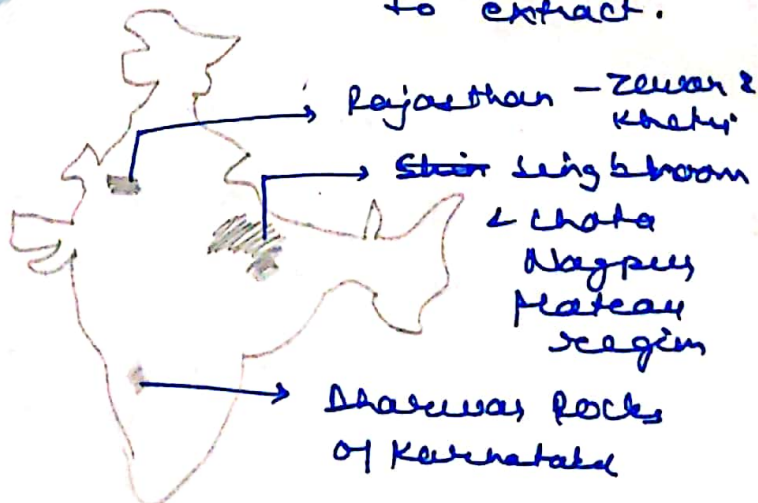 to extract.
Rajasthan - Zewar &
Khetri
Singbhoom
& Chota
Nagpur
Plateau
region
Dharwar Rocks
of Karnataka